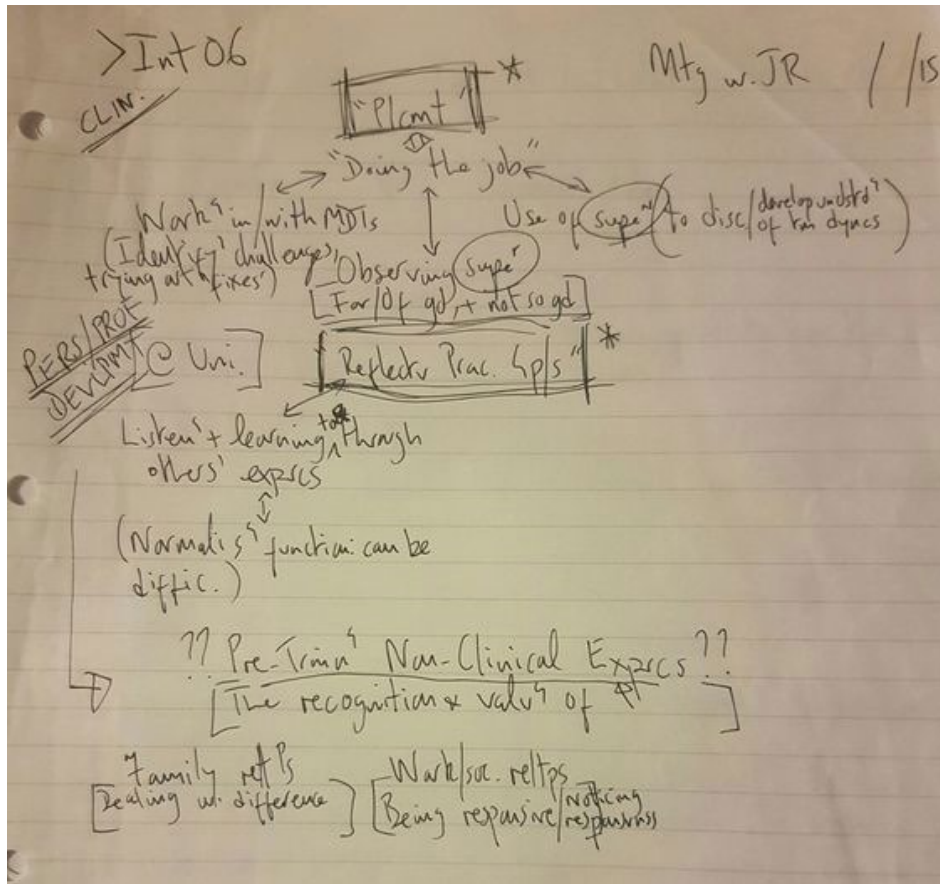 >Int 06
Mtg w. JR / /15
CLIN.
"Plcmt" *
"Doing the job"
Work^g in/with MDTs
(Identify^g challenges,
trying out 'fixes')
Observing supe^r
[For/Of gd, + not so gd]
Use of supe^n (to disc/develop undstd^g
of tm dyncs)
PERS/PROF
DEVLPMT
[@ Uni.]
"Reflectv Prac. Gp/s" *
Listen^g + learning through
others' exprcs
(Normalis^g function: can be
diffic.)
?? Pre-Train^g Non-Clinical Exprcs ??
[The recognition & valu^g of ]
Family relPs
[Dealing w. difference]
Work/soc. reltps
[Being responsive/Nothing
responsvnss